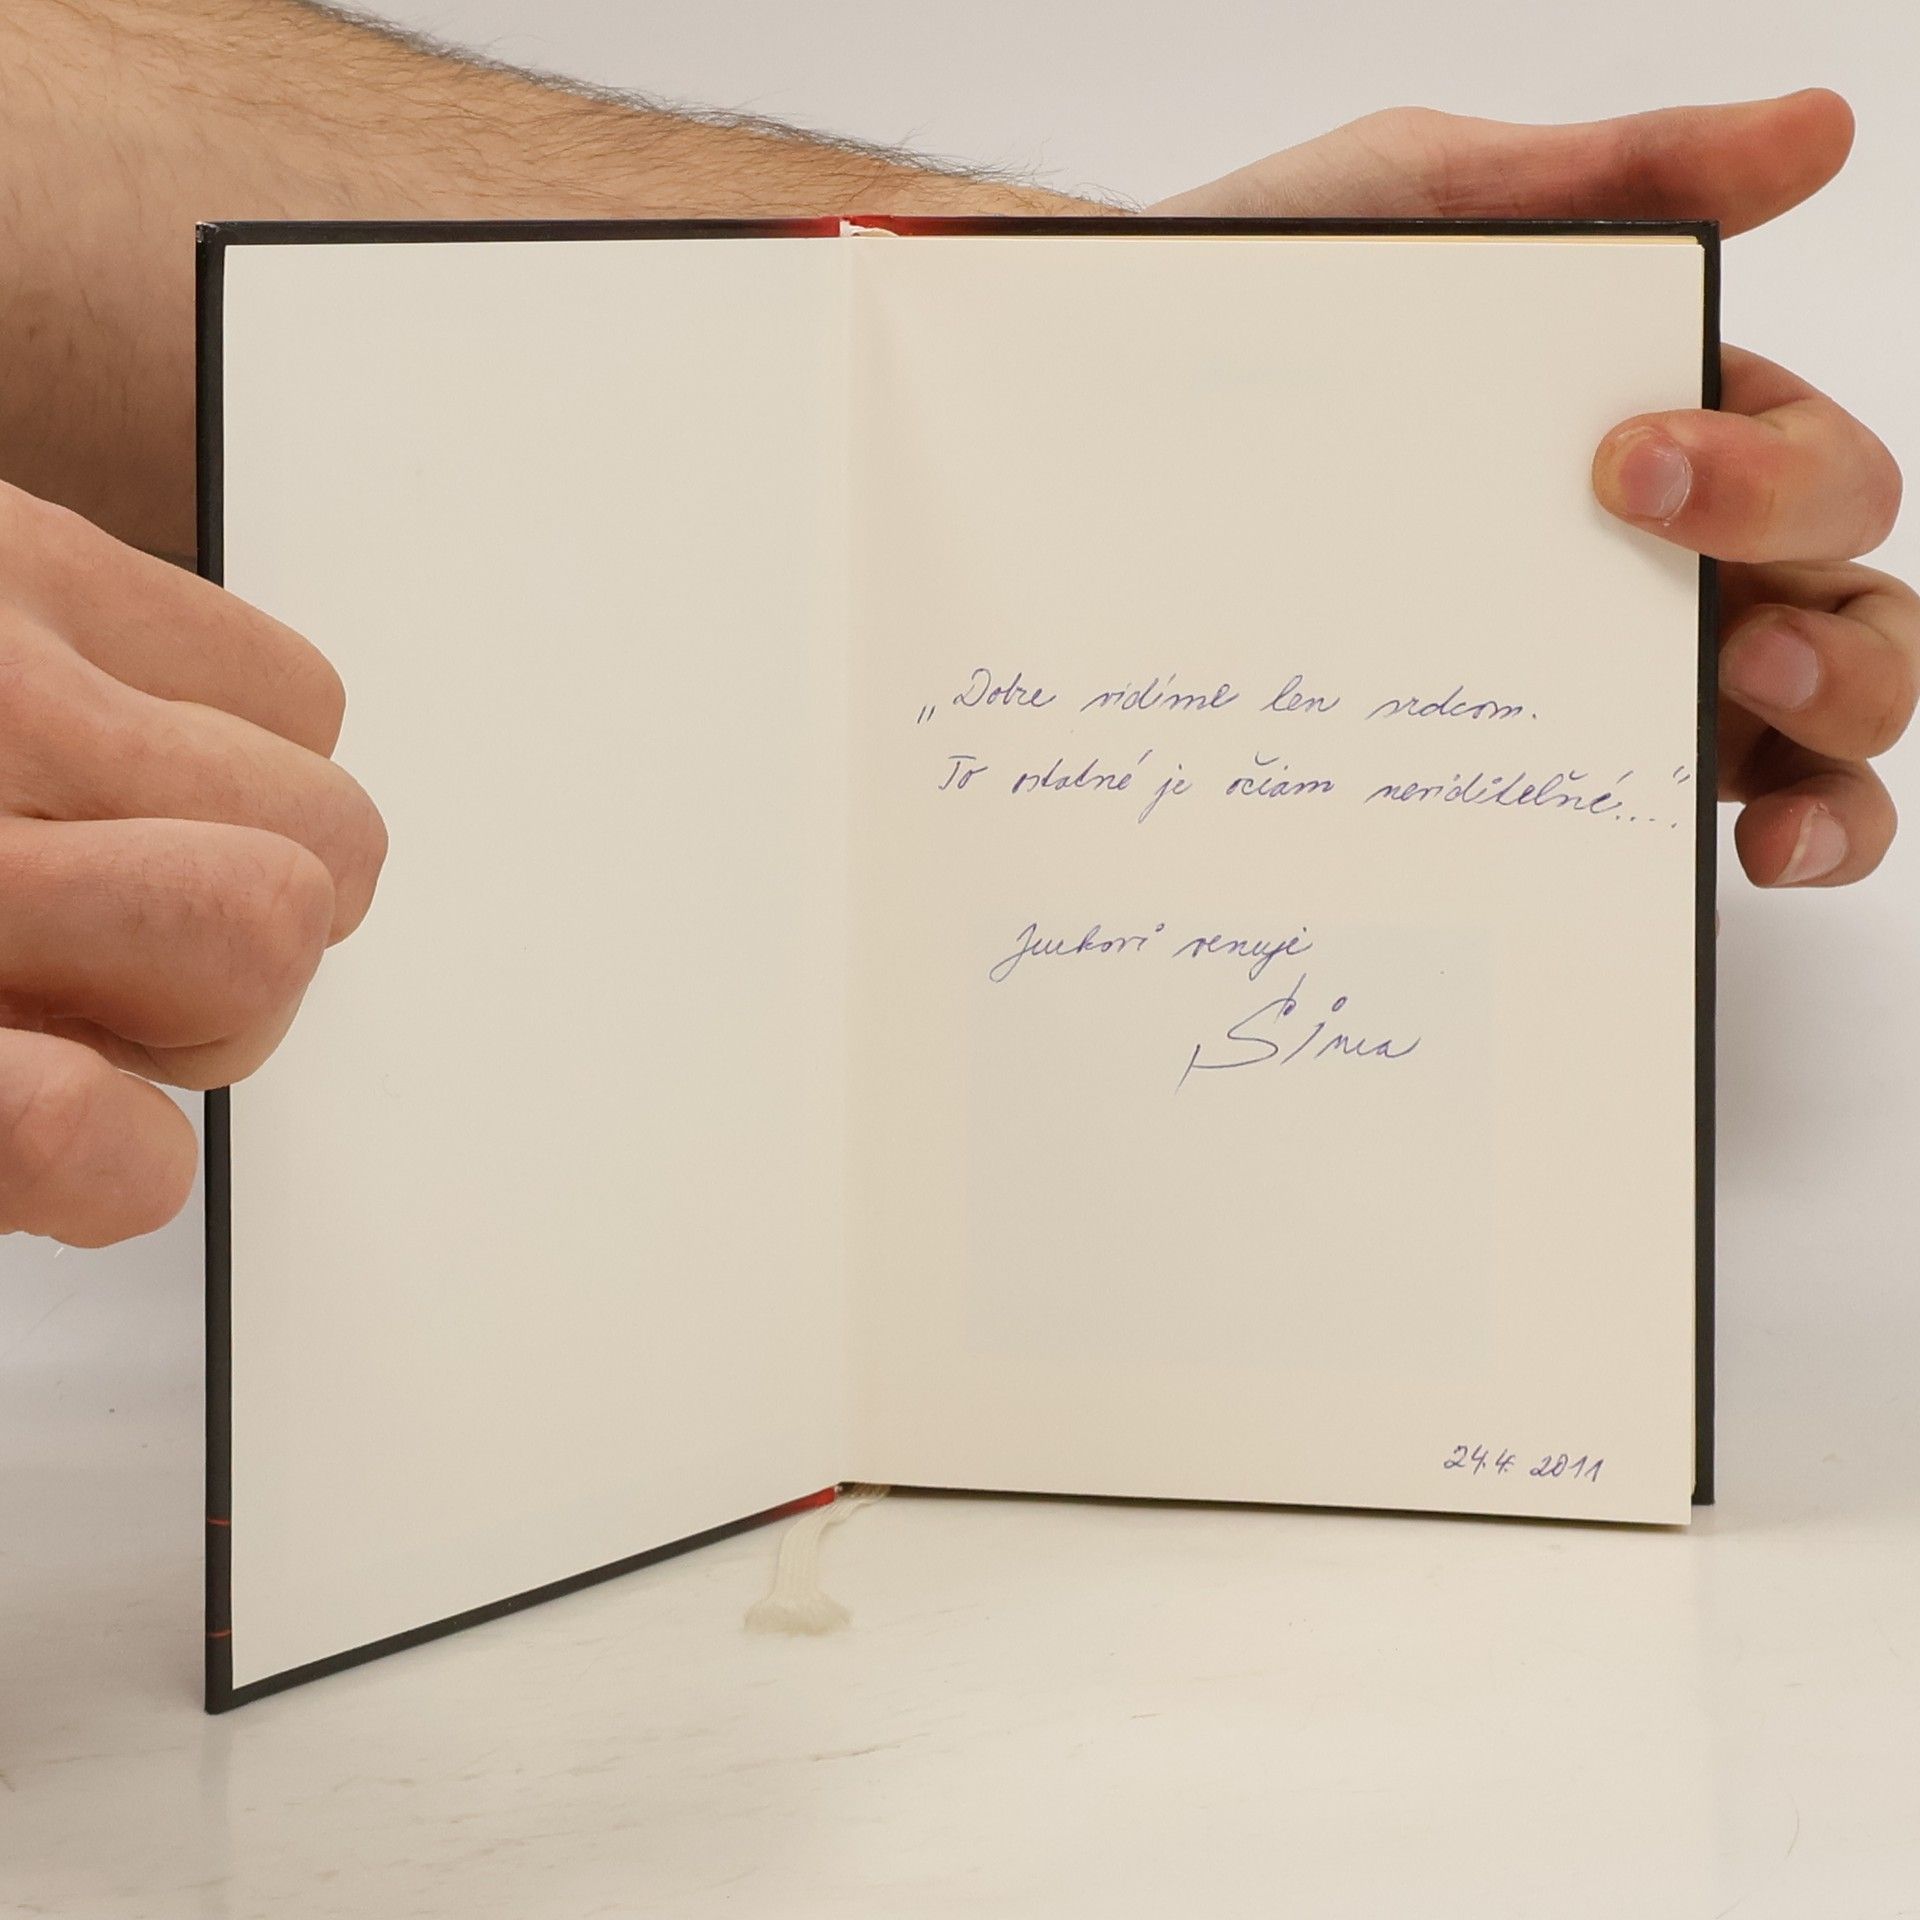 „Dobre vidíme len srdcom.
To ostatné je očiam neviditeľné...."
venuje
24.4. 2011